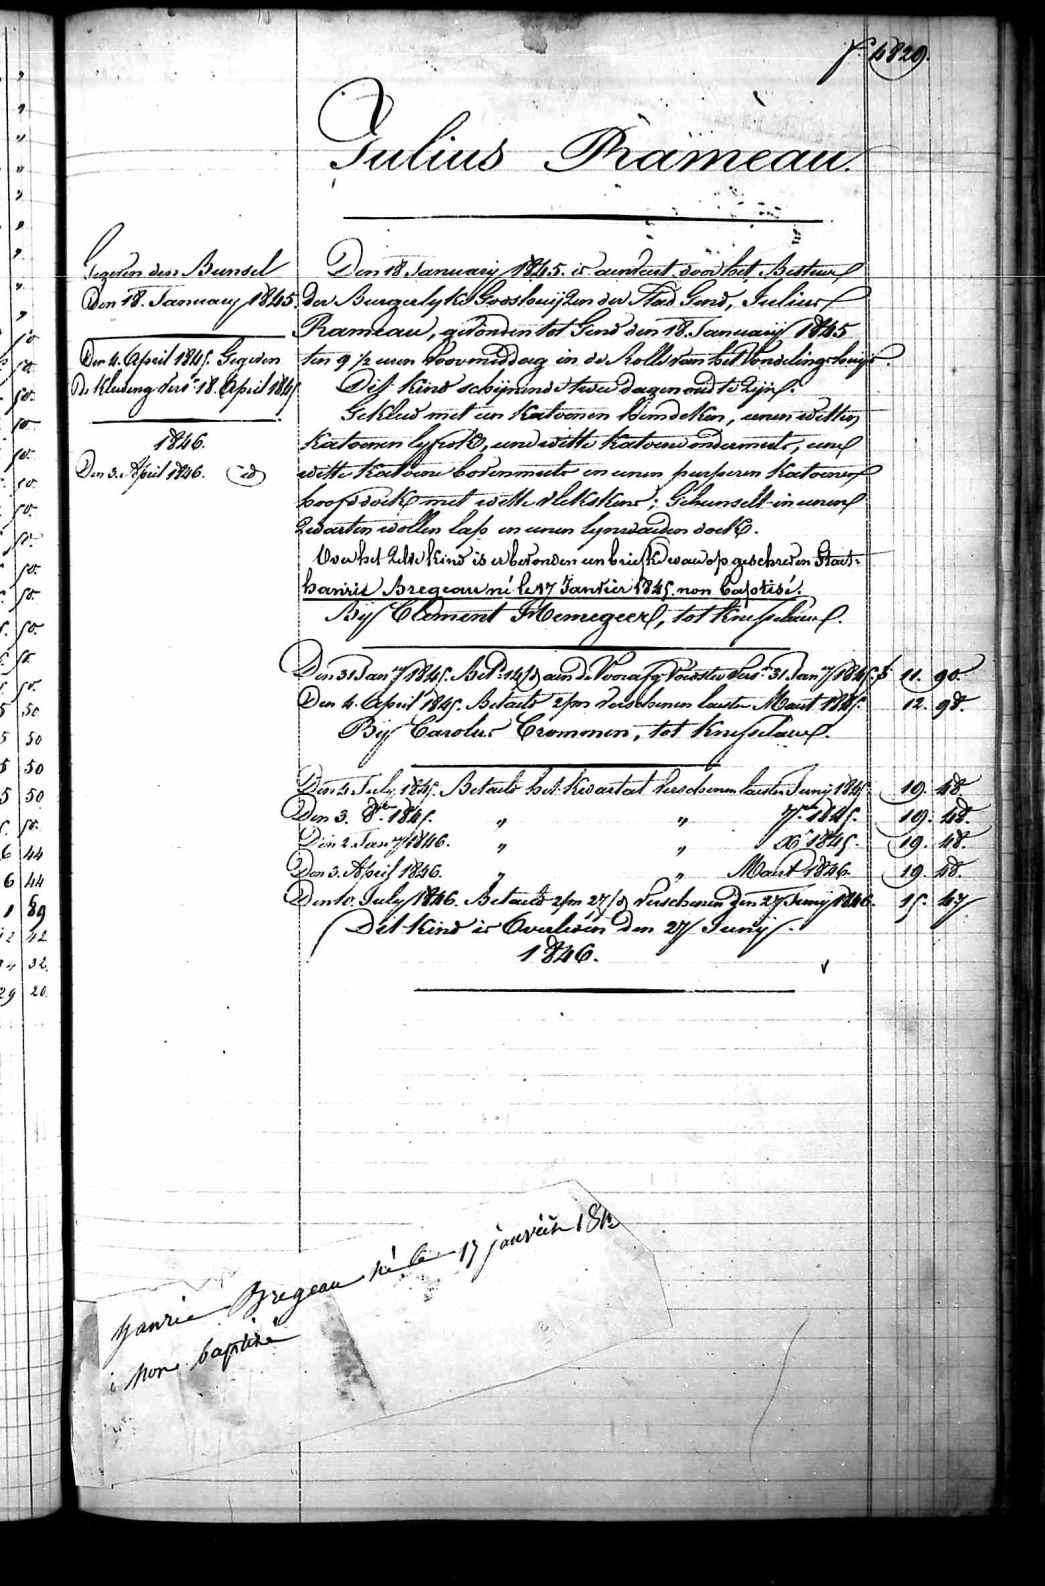 f.° 4829.
Julius Rameau.
Gegeven den Bunsel
Den 18. January 1845.
Den 4. April 1845. Gegeven
De Kleding vers.ⁿ 18. April 1845
1846.
Den 3. April 1846. id
Den 18 January 1845. is aenveert door het Bestuer
der Burgerlyke Godshuijzen der Stad Gend, Julius
Rameau, gevonden tot Gend den 18. January 1845
ten 9 1/2 uren voormiddag in de Rolle van het Vondelinghuijs.
Dit kind schijnende twee dagen oud te zijn.
Gekleed met een katoenen hemdeken, eenen witten
katoenen lyfrok, eene witte katoene ondermuts, eene
witte katoene bovenmuts en eenen purperen katoenen
hoofddoek met witte vlekskens; Gebunselt in eenen
zwarten wollen lap en eenen lynwaeden doek.
Over het zelve kind is er bevonden een briefke waer op geschreven staet:
hanrie Bregeau né le 17 Janvier 1845. non baptisé.
Bij Clement Hemegeer, tot Knesselaere.
Den 31 Jan.ʸ 1845. Bet.ᵈ 14/d aen de Voorafg. Voedster vers.ⁿ 31 Jan.ʸ 1845. f 11. 90.
Den 4. April 1845. Betaeld 2/m verschenen laesten Maert 1845. 12. 98.
Bij Carolus Crommen, tot Knesselaere.
Den 4. July 1845. Betaeld het kwartael verschenen laesten Junij 1845. 19. 48.
Den 3. 8.bre 1845. " " 7.bre 1845. 19. 48.
Den 2. Jan.ʸ 1846. " " X.bre 1845. 19. 48.
Den 3. April 1846. " " Maert 1846. 19. 48.
Den 10. July 1846. Betaeld 2/m 27/d verschenen den 27 Junij 1846. 15. 47
Dit kind is Overleden den 27 Junij
1846.
hanrie Bregeau né le 17 janvier 184
non baptisé